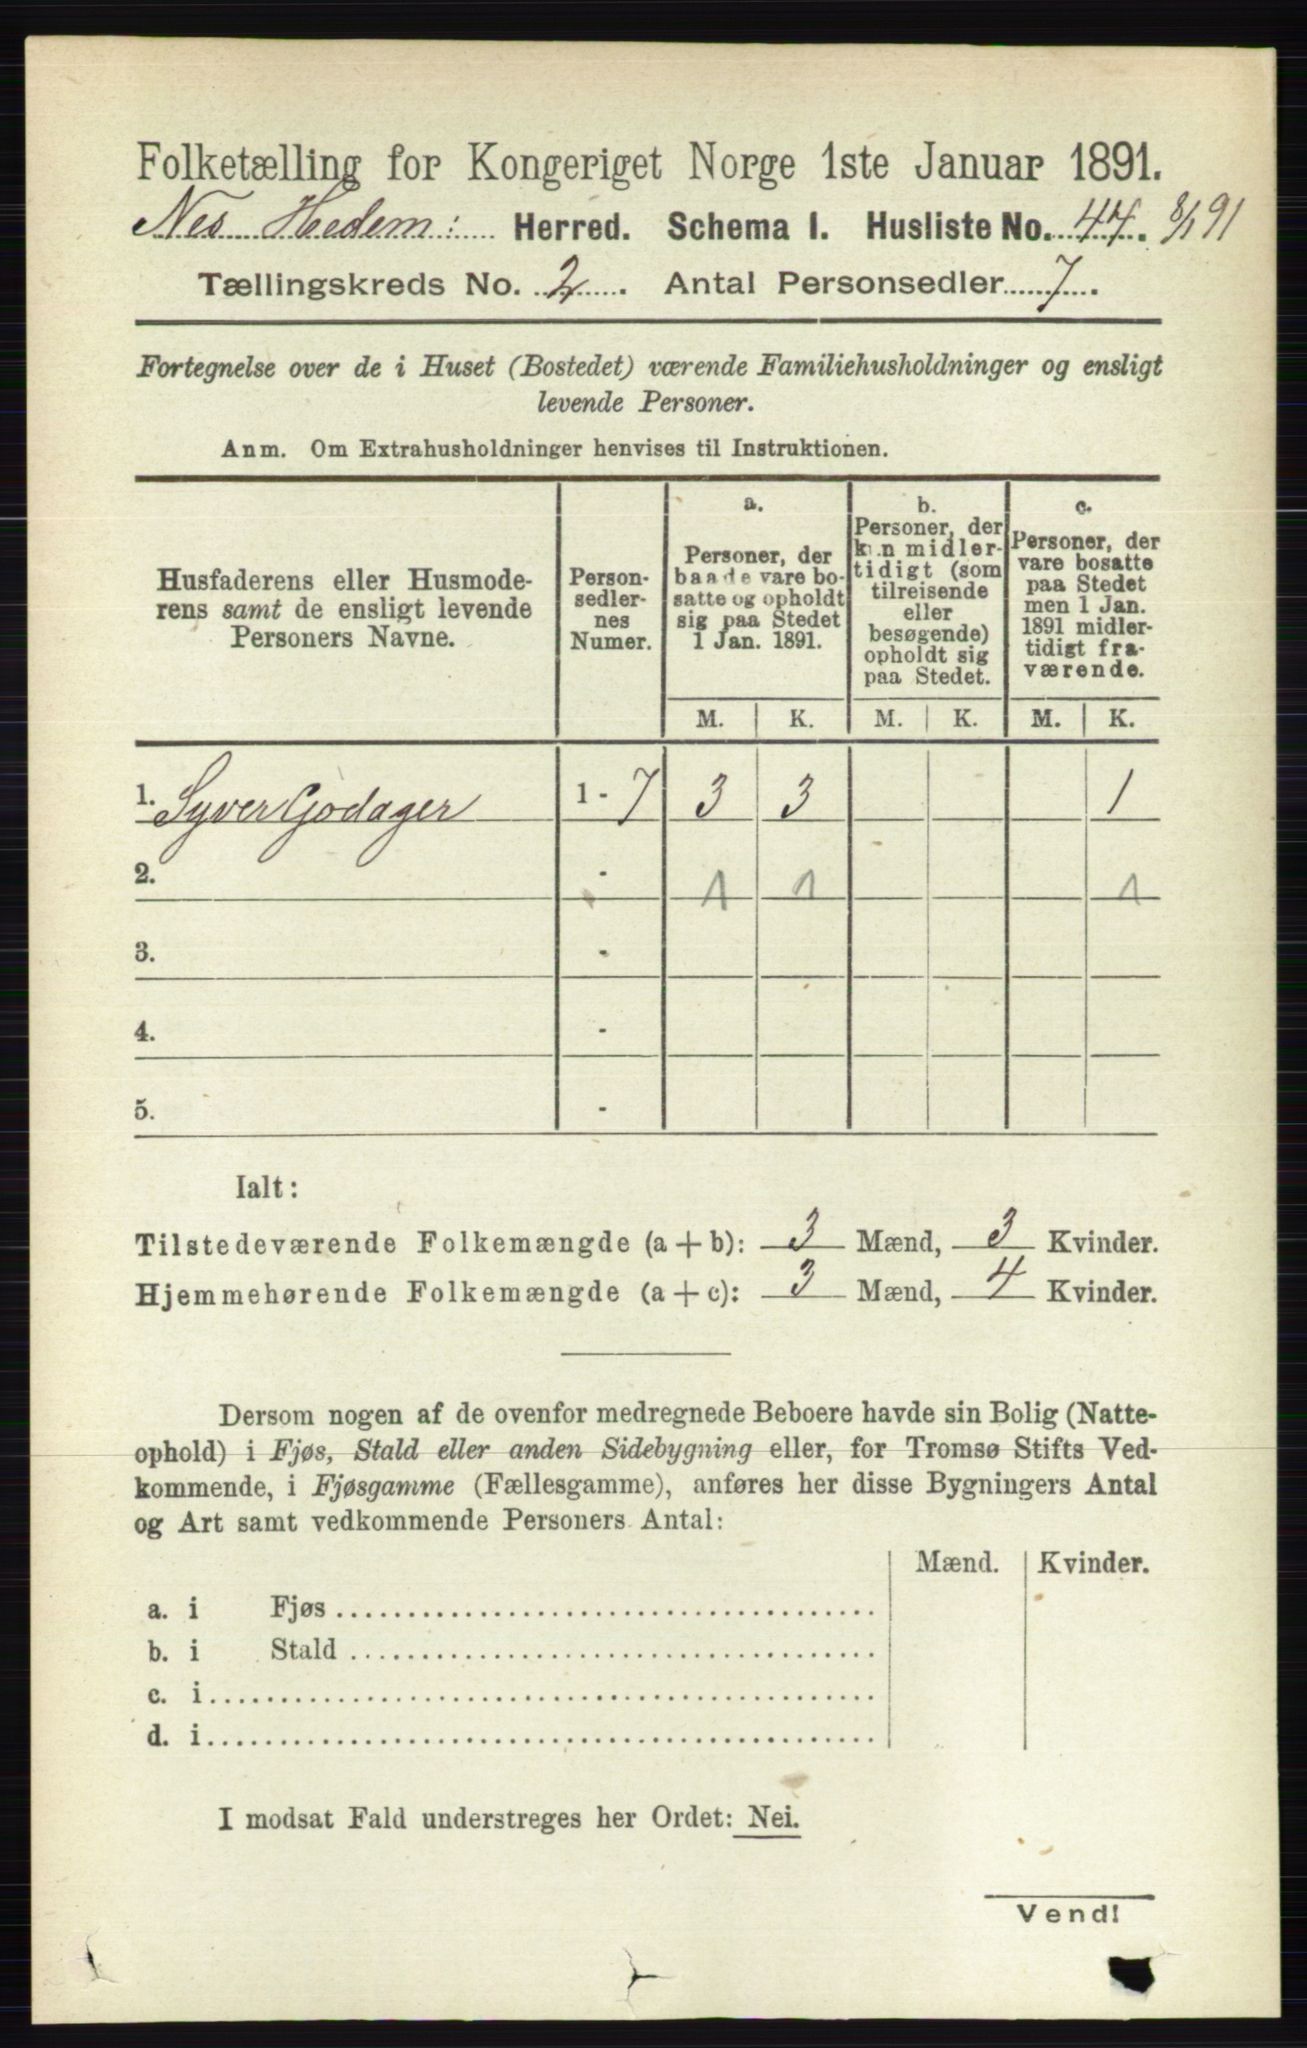 Folketælling for Kongeriget Norge 1ste Januar 1891.
Nes Hedem: Herred. Schema I. Husliste No. 47. 8/1 91
Tællingskreds No. 2. Antal Personsedler 7.
Fortegnelse over de i Huset (Bostedet) værende Familiehusholdninger og ensligt
levende Personer.
Anm. Om Extrahusholdninger henvises til Instruktionen.
Husfaderens eller Husmode-
rens samt de ensligt levende
Personers Navne.
Person-
sedler-
nes
Numer.
a.
Personer, der
baade vare bo-
satte og opholdt
sig paa Stedet
1 Jan. 1891.
b.
Personer, der
kun midler-
tidigt (som
tilreisende
eller
besøgende)
opholdt sig
paa Stedet.
c.
Personer, der
vare bosatte
paa Stedet
men 1 Jan.
1891 midler-
tidigt fra-
værende.
M. K. M. K. M. K.
1. Syver Gjødager 1 - 7 3 3 1
2. - 1 1 1
3. -
4. -
5. -
Ialt:
Tilstedeværende Folkemængde (a + b): 3 Mænd, 3 Kvinder.
Hjemmehørende Folkemængde (a + c): 3 Mænd, 4 Kvinder.
Dersom nogen af de ovenfor medregnede Beboere havde sin Bolig (Natte-
ophold) i Fjøs, Stald eller anden Sidebygning eller, for Tromsø Stifts Ved-
kommende, i Fjøsgamme (Fællesgamme), anføres her disse Bygningers Antal
og Art samt vedkommende Personers Antal:
Mænd. Kvinder.
a. i Fjøs
b. i Stald
c. i
d. i
I modsat Fald understreges her Ordet: Nei.
Vend!